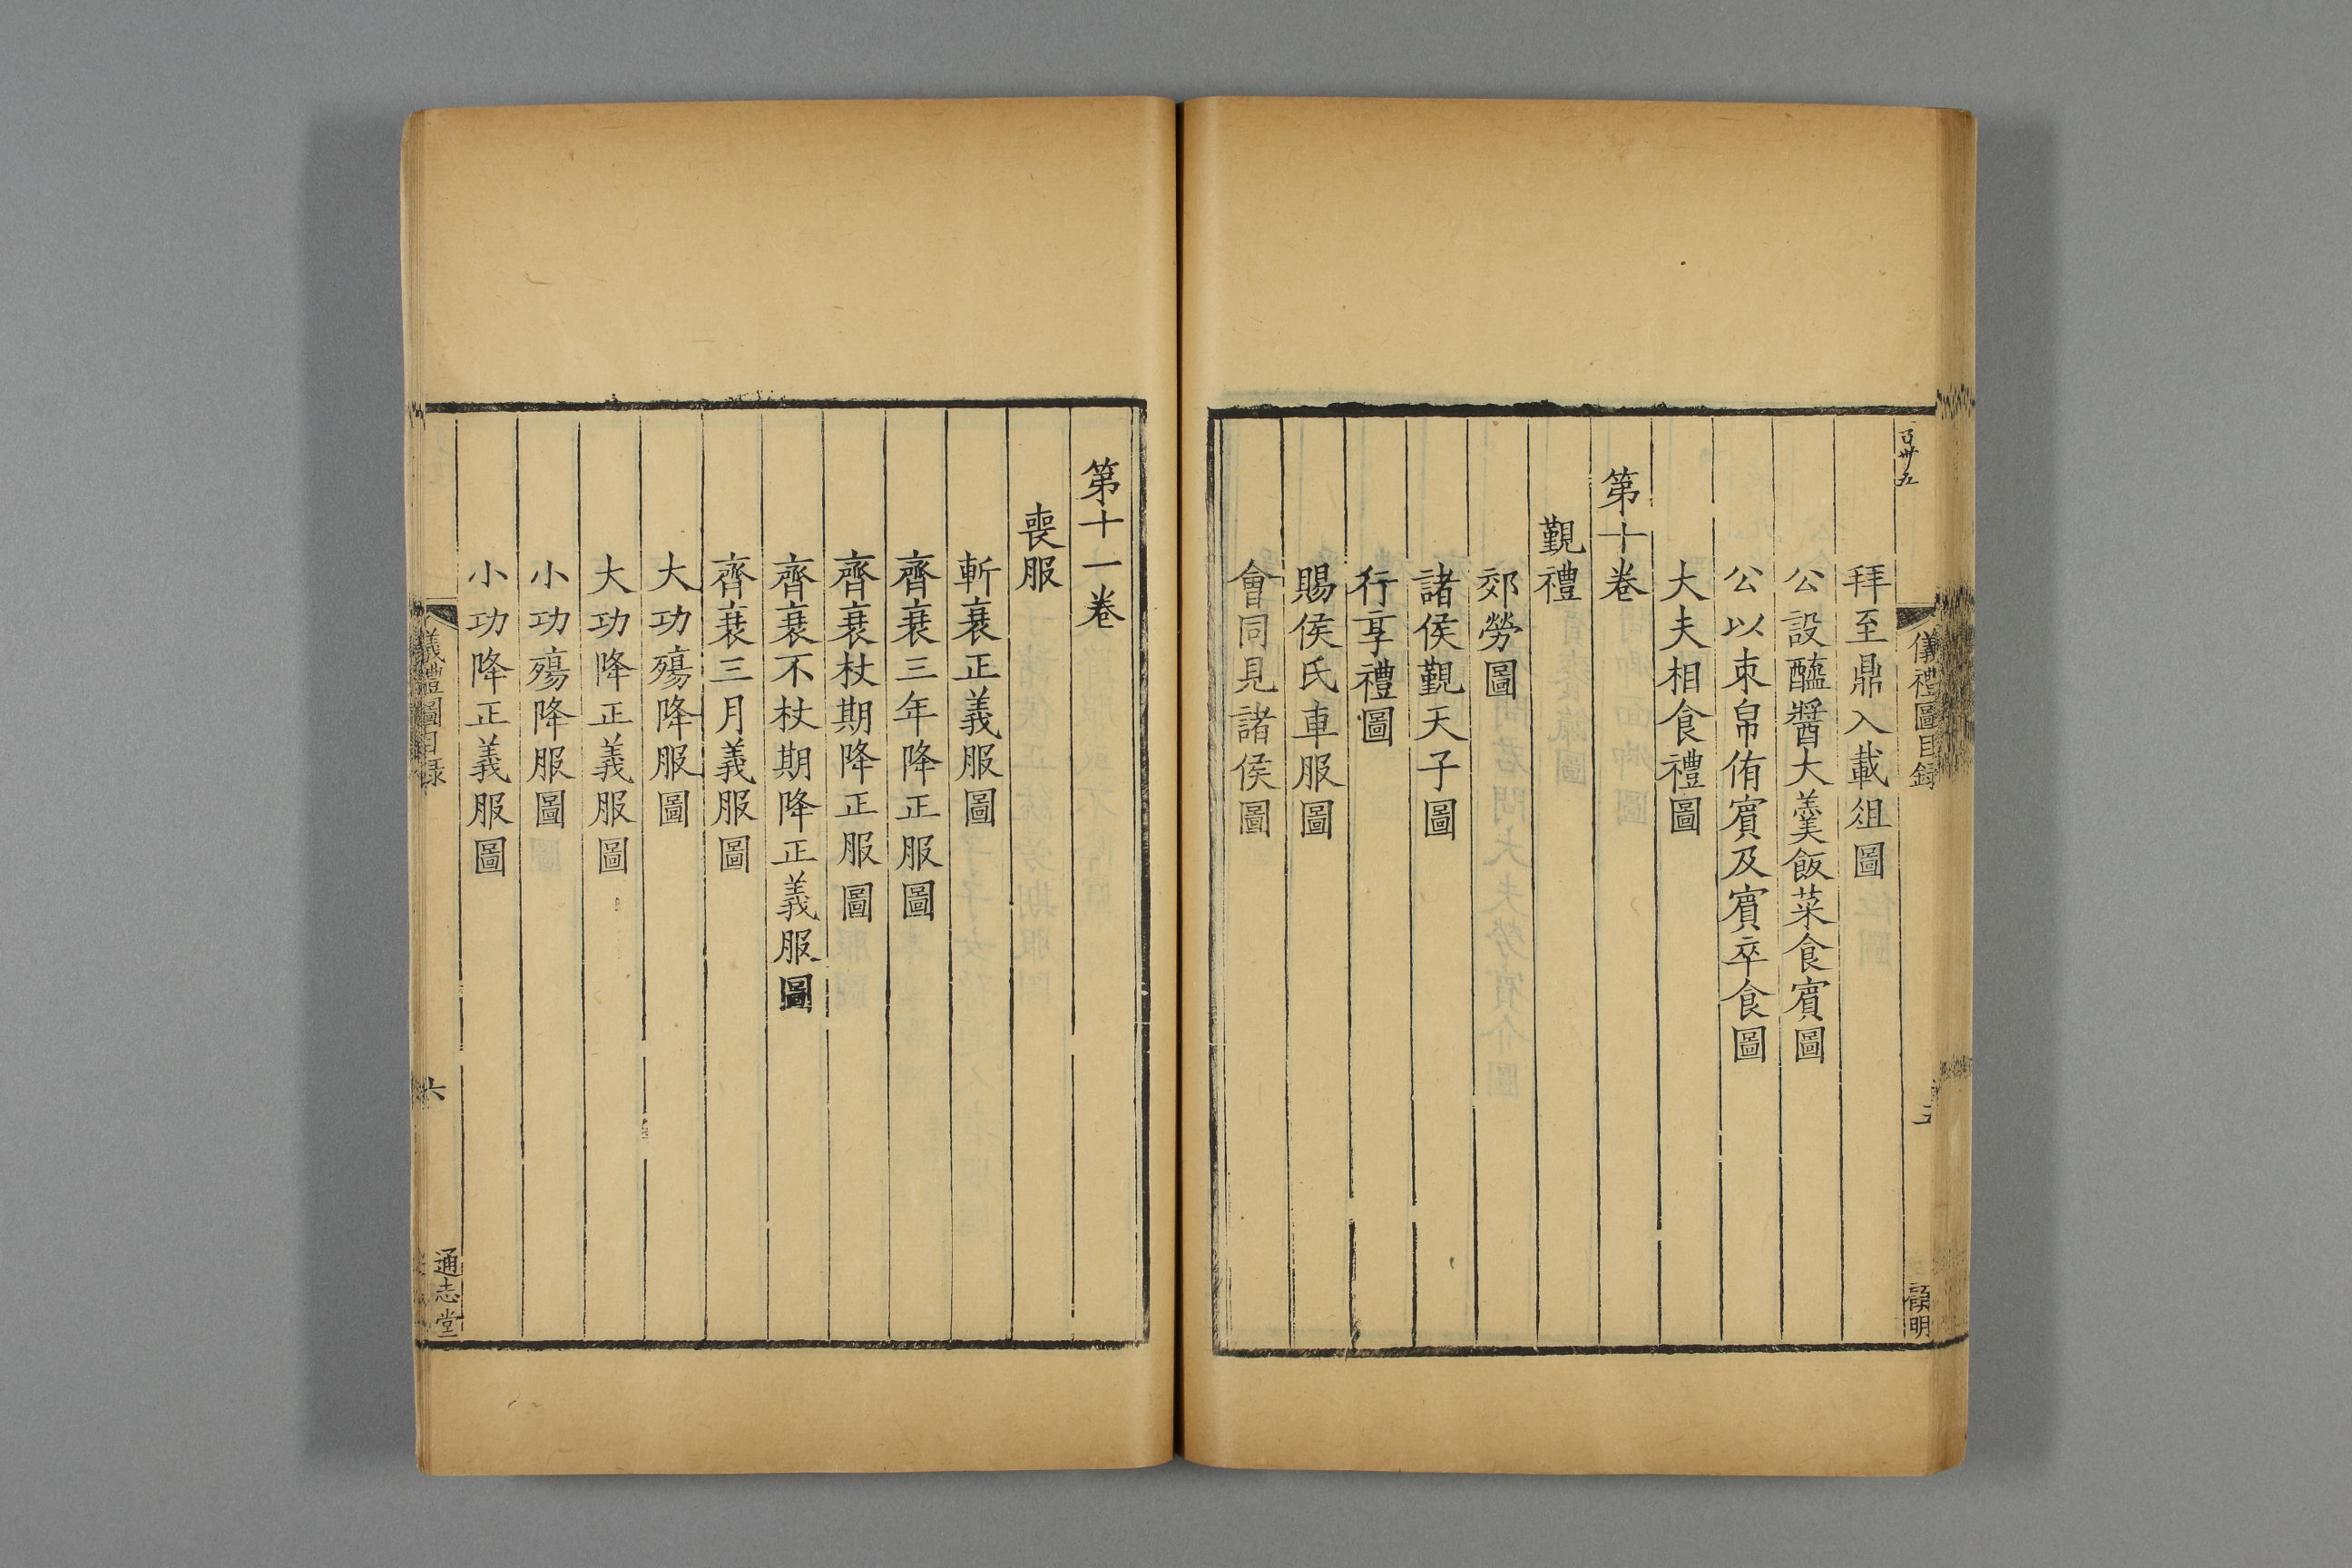 百卅五
儀禮圖目錄
顧明
拜至鼎入載俎圖
公設醯醬大羹飯菜食賓圖
公以束帛侑賓及賓卒食圖
大夫相食禮圖
第十卷
覲禮
郊勞圖
諸侯覲天子圖
行享禮圖
賜侯氏車服圖
會同見諸侯圖
第十一卷
喪服
斬衰正義服圖
齊衰三年降正服圖
齊衰杖期降正服圖
齊衰不杖期降正義服圖
齊衰三月義服圖
大功殤降服圖
大功降正義服圖
小功殤降服圖
小功降正義服圖
儀禮圖目錄
六
通志堂